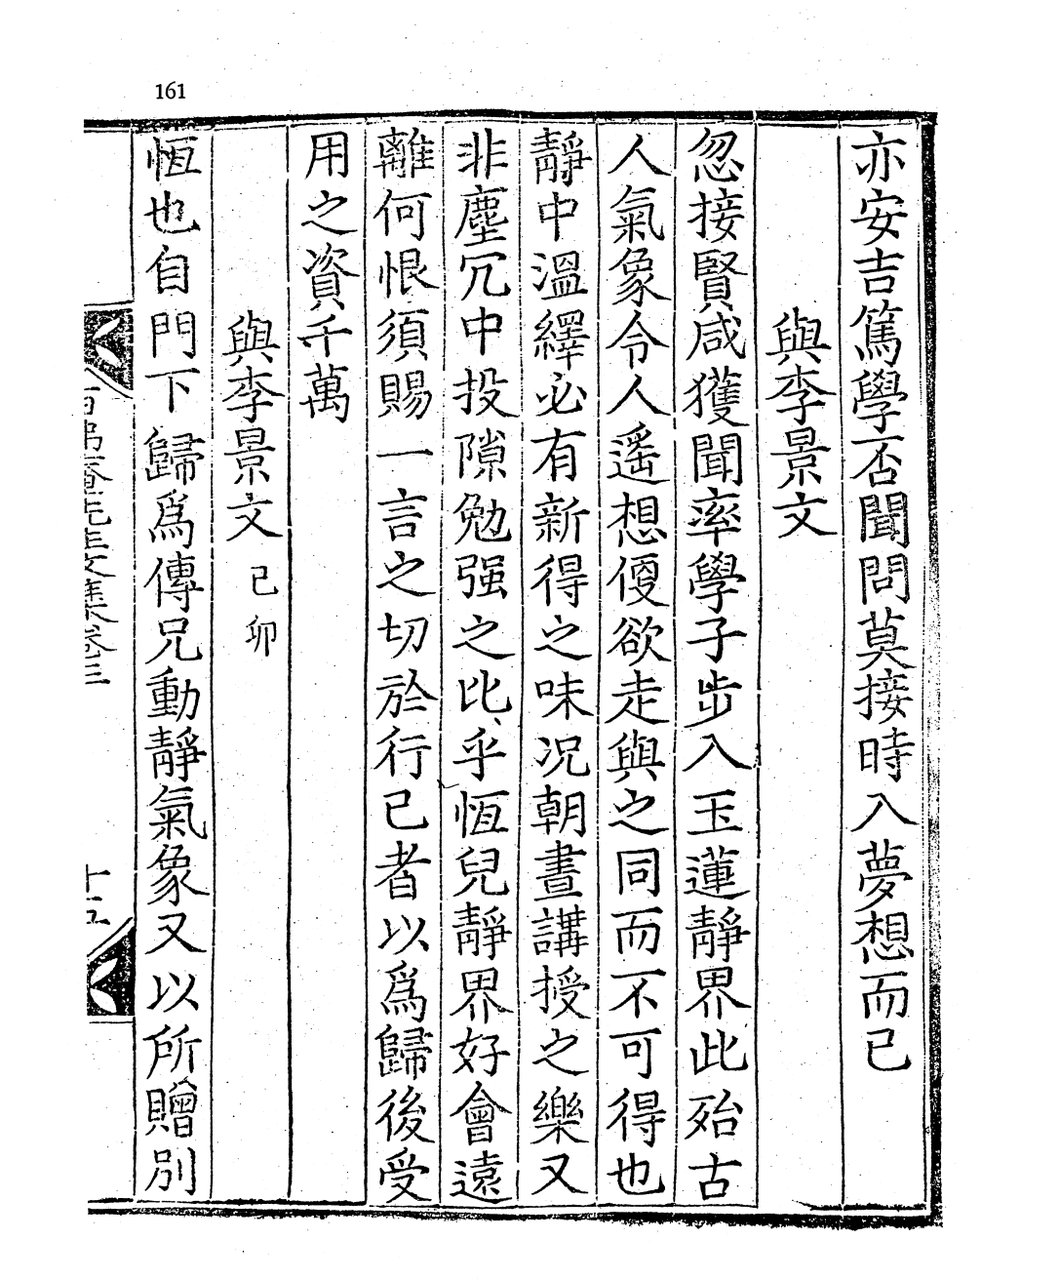 161
亦安吉篤學否聞問莫接時入夢想而已
與李景文
忽接賢咸獲聞率學子步入玉蓮靜界此殆古
人氣象令人遥想便欲走與之同而不可得也
靜中溫繹必有新得之味况朝晝講授之樂又
非塵冗中投隙勉强之比乎恆兒靜界好會遠
離何恨須賜一言之切於行已者以爲歸後受
用之資千萬
與李景文 己卯
恆也自門下歸爲傳兄動靜氣象又以所贈別
先生文集卷三
十五